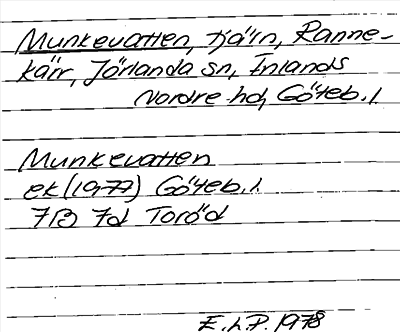 Munkevatten, tjärn, Ranne-
kärr, Jörlanda sn, Inlands
Nordre hd, Göteb. l.
Munkevatten
ek (1977) Göteb. l.
7B 7d Toröd
E. L. P. 1978